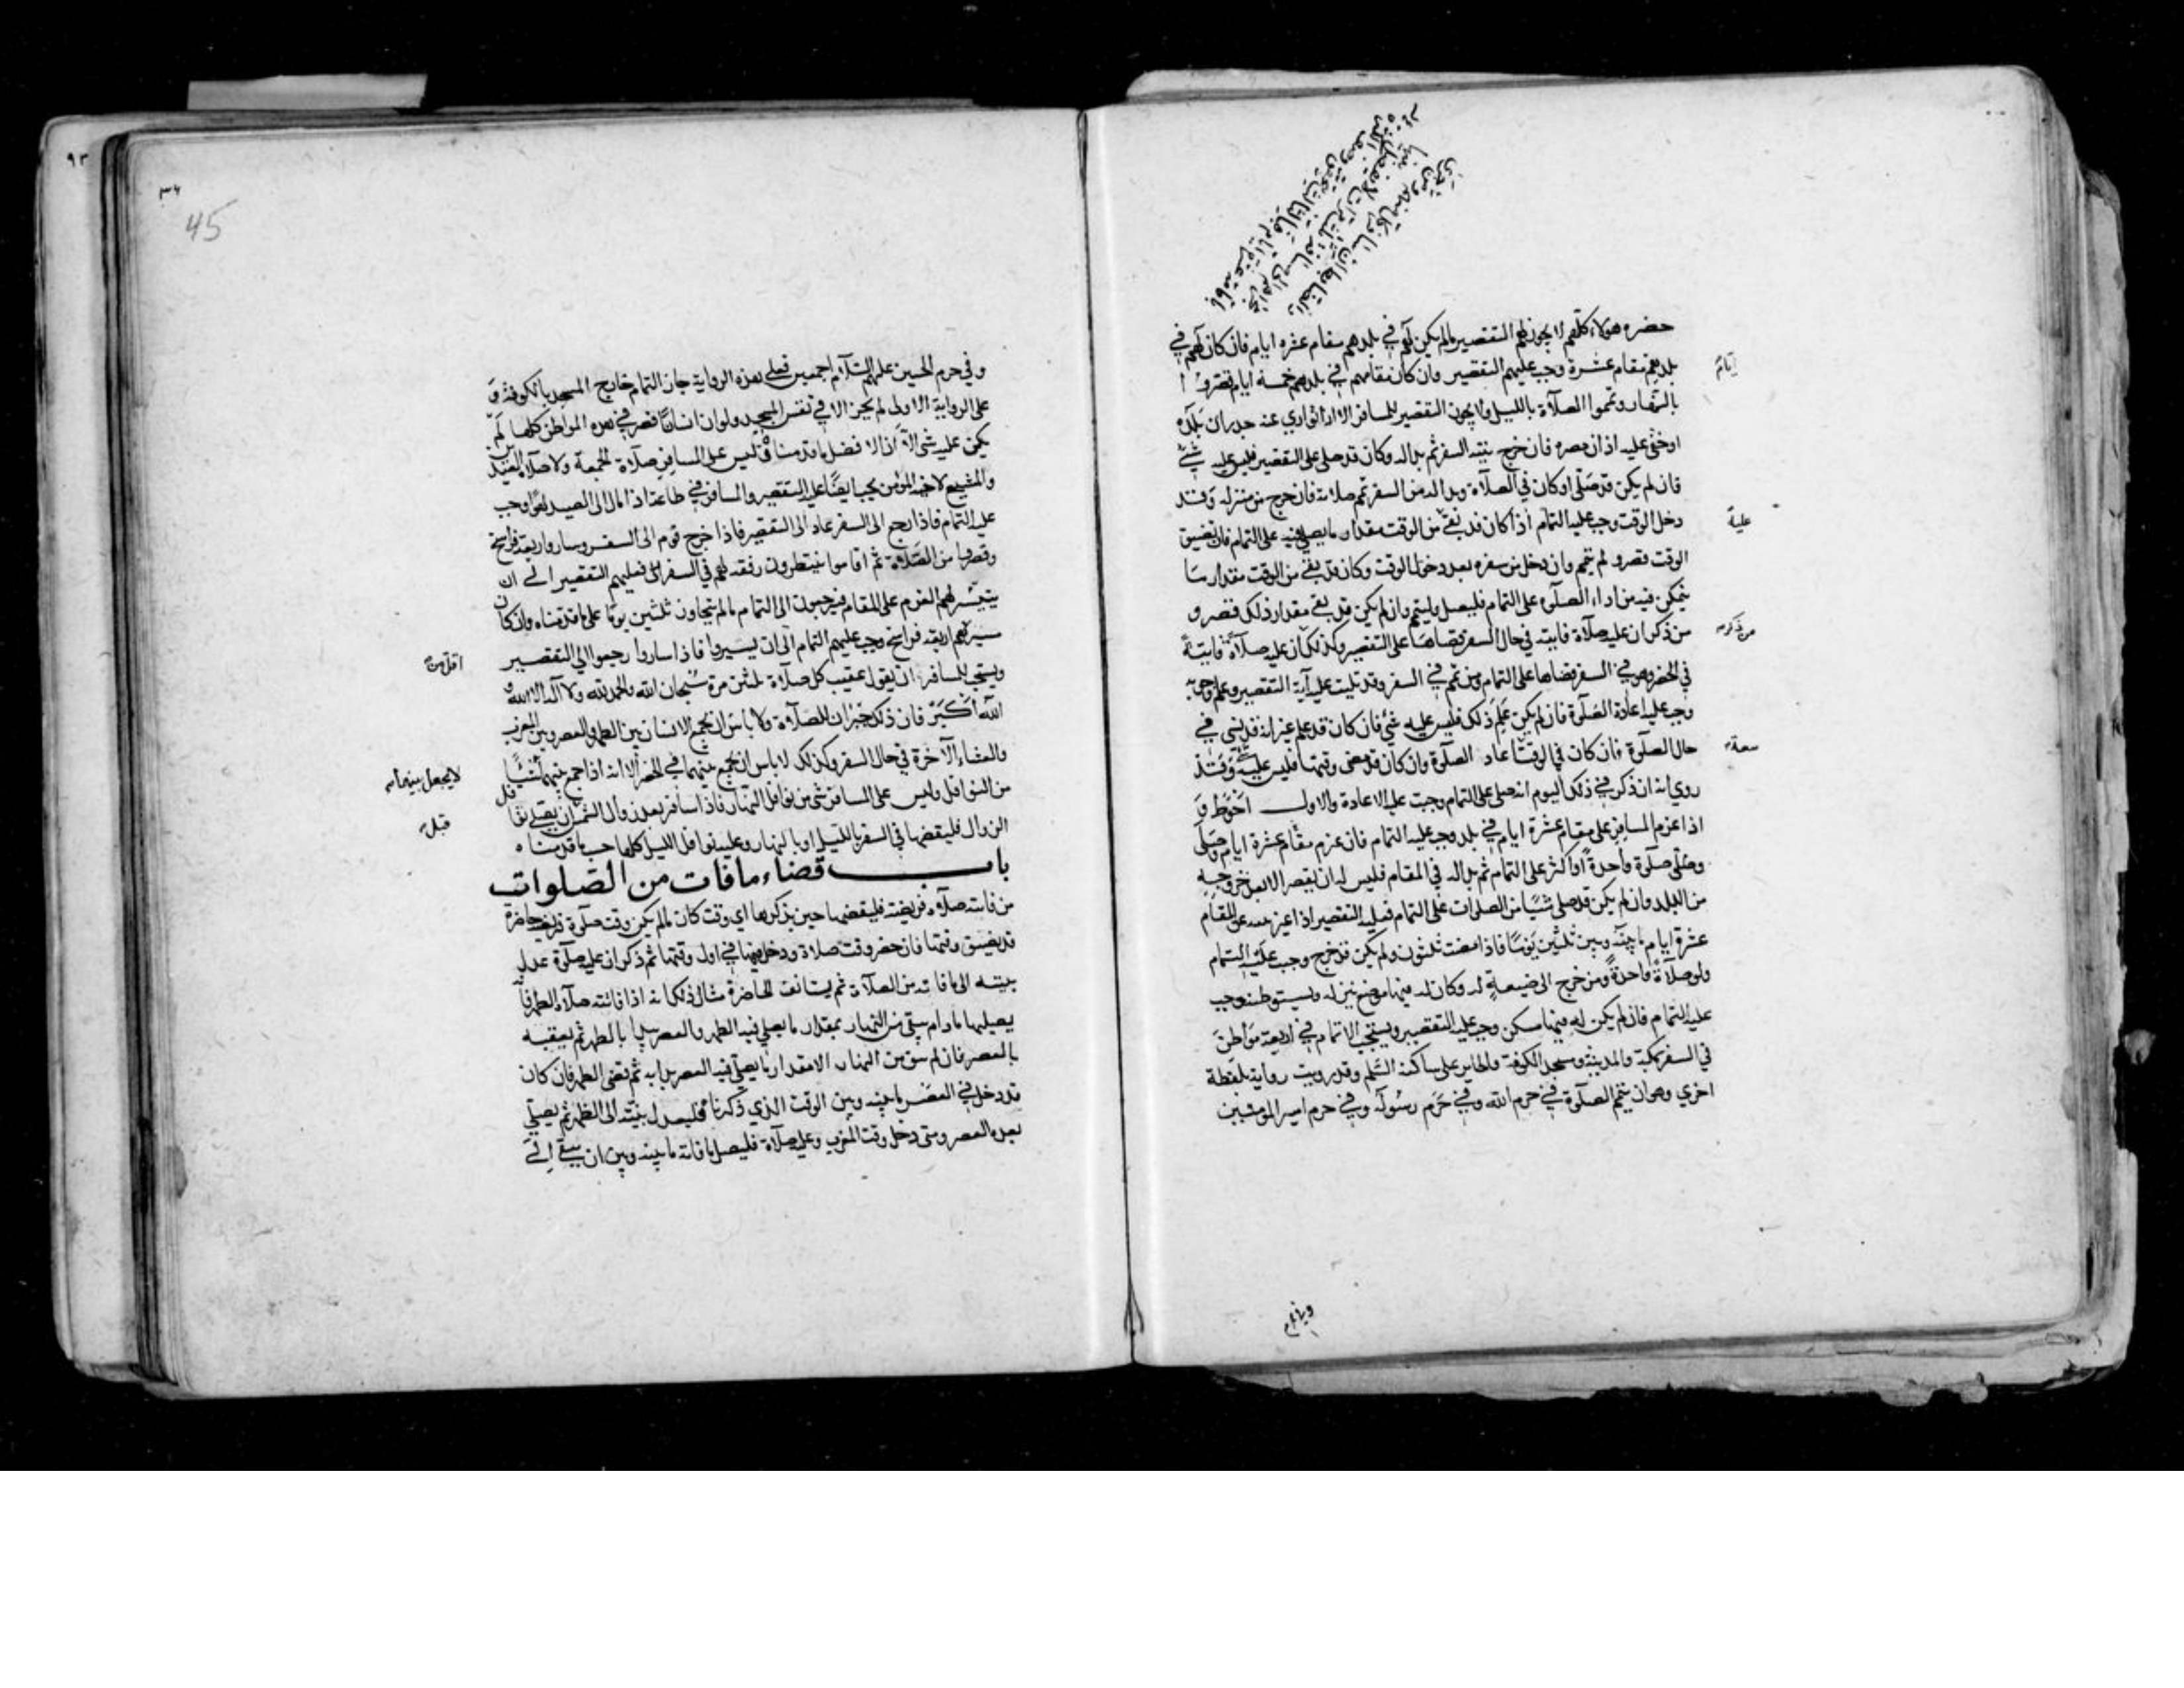 حضره هولاء كلّهم لا يجوز لهم التقصير ما لم يكن لهم في بلدهم مقام عشره ايام فان كان لهم في
بلدهم مقام عشرة وجب عليهم التقصير وان كان مقامهم في بلدهم خمسة ايام قصروا
ايام
بالنهار وتمموا الصلاة بالليل ولا يجوز التقصير للمسافر الا اذا توارى عنه جدران بلده
او خفى عليه اذان مصره فان خرج بنية السفر ثم بدا له وكان قد صلى على التقصير فليس عليه شي
فان لم يكن قد صلى او كان في الصلاة وبدا له من السفر تمم صلاته فان خرج من منزله وقد
دخل الوقت وجب عليه التمام اذا كان قد بقى من الوقت مقدار ما يصلى فيه على التمام فان تضيق
عليه
الوقت قصر ولم يتمم وان دخل من سفره بعد دخول الوقت وكان قد بقى من الوقت مقدار ما
يتمكن فيه من اداء الصلوة على التمام فليصل وليتم وان لم يكن قد بقى مقدار ذلك قصر و
من ذكر ان عليه صلاة فايته في حال السفر قضاها على التقصير وكذلك ان عليه صلاة فايتة
من ذكر
في الحضر وهو في السفر قضاها على التمام ومن تمم في السفر وقد تليت عليه آية التقصير وعلم وجوبه
وجب عليه اعادة الصلوة فان لم يكن علم ذلك فليس عليه شي فان كان قد علم غير انه قد نسى في
حال الصلوة فان كان في الوقت اعاد الصلوة وان كان قد مضى وقتها فليس عليه وقد
روي انه ان ذكر في ذلك اليوم انه صلى على التمام وجبت عليه الاعادة والاول احوط و
اذا عزم المسافر على مقام عشرة ايام في بلد وجب عليه التمام فان عزم مقام عشرة ايام وصلى
وصلى صلوة واحدة او اكثر على التمام ثم بدا له في المقام فليس له ان يقصر الا بعد خروجه
من البلد وان لم يكن قد صلى شيئا من الصلوات على التمام فعليه التقصير اذا غير على المقام
عشرة ايام ما بينه وبين ثلثين يوما فاذا مضت ثلثون ولم يكن قد خرج وجب عليه التمام
ولو صلاة واحدة ومن خرج الى ضيعة له وكان له فيها موضع ينزله ويستوطنه وجب
عليه التمام فان لم يكن له فيها مسكن وجب عليه التقصير ويستحب الاتمام في اربعة مواطن
في السفر بمكة والمدينة ومسجد الكوفة والحاير على ساكنه السلم وقد رويت رواية بلفظة
اخري وهو ان يتمم الصلوة في حرم الله وفي حرم رسوله وفي حرم امير المومنين
وفي حرم
٣٤
45
٩٣
و في حرم الحسين عليهم السلام اجمعين فعلى هذه الرواية جاز التمام خارج المسجد بالكوفة و
على الرواية الاولى لم يجز الا في نفس المسجد ولو ان انسانا قصر في هذه المواطن كلها لم
يكن عليه شي الا ان الافضل ما قدمناه وليس على المسافر صلاة الجمعة ولا صلاة العيد
والمشيع لاخيه المؤمن يجب ايضا عليه التقصير والمسافر في طاعة اذا مال الى الصيد لهوا وجب
عليه التمام فاذا رجع الى السفر عاد الى التقصير فاذا خرج قوم الى السفر وساروا اربعة فراسخ
وقصروا من الصلاة ثم اقاموا ينتظرون رفقة لهم في السفر فعليهم التقصير الى ان
يتيسر لهم العزم على المقام فيرجعون الى التمام ما لم يتجاوز ثلثين يوما على ما قدمناه وان كان
مسيرهم اربعة فراسخ وجب عليهم التمام الى ان يسيروا فاذا ساروا رجعوا الى التقصير
اقل من
ويستحب للمسافر ان يقول عقيب كل صلاة ثلثين مرة سبحان الله والحمد لله ولا اله الا الله و
الله اكبر فان ذلك جبران للصلاة ولا باس ان يجمع الانسان بين الظهر والعصر وبين المغرب
والعشاء الآخرة في حال السفر وكذلك لا باس ان يجمع بينهما في الحضر الا انه اذا جمع بينهما شيئا
لا يجعل بينهما
من النوافل وليس على المسافر شي من نوافل النهار فاذا سافر بعد زوال الشمس ان يصلى نوافل
قبل
الزوال فليقضها في السفر بالليل او بالنهار وعليه نوافل الليل كلها حسب ما قدمناه
باب قضاء ما فات من الصلوات
من فاتته صلاة فريضة فليقضها حين يذكرها اي وقت كان ما لم يكن وقت صلوة فريضة حاضرة
قد تضيق وقتها فان حضر وقت صلاة ودخل فيها في اول وقتها ثم ذكر ان عليه صلوة عدل
بنيته الى ما فاته من الصلاة ثم يستانف الحاضرة مثال ذلك انه اذا فاتته صلاة الظهر فانه
يصليها ما دام يبقى من النهار بمقدار ما يصلي فيه الظهر والعصر يبدا بالظهر ثم يعقبه
بالعصر فان لم يبق من النهار الا مقدار ما يصلي فيه العصر بدا به ثم قضى الظهر فان كان
قد دخل في العصر ما بينه وبين الوقت الذي ذكرناه فليعدل بنيته الى الظهر ثم يصلي
بعده العصر ومتى دخل وقت المغرب وعليه صلاة فليصل ما فاته ما بينه وبين ان يبقى الى